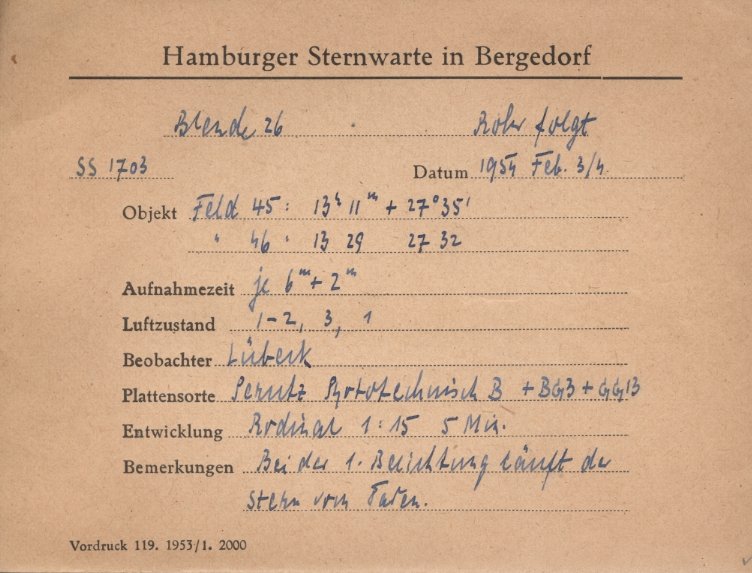 Hamburger Sternwarte in Bergedorf
Blende 26 Rohr folgt
SS 1703 Datum 1954 Feb. 3/4.
Objekt Feld 45: 13ʰ 11ᵐ + 27° 35'
" 46: 13 29 27 32
Aufnahmezeit je 6ᵐ + 2ᵐ
Luftzustand 1-2, 3, 1
Beobachter Lübeck
Plattensorte Perutz Phototechnisch B + BG3 + GG13
Entwicklung Rodinal 1:15 5 Min.
Bemerkungen Bei der 1. Belichtung läuft der
Stern vom Faden.
Vordruck 119. 1953/1. 2000